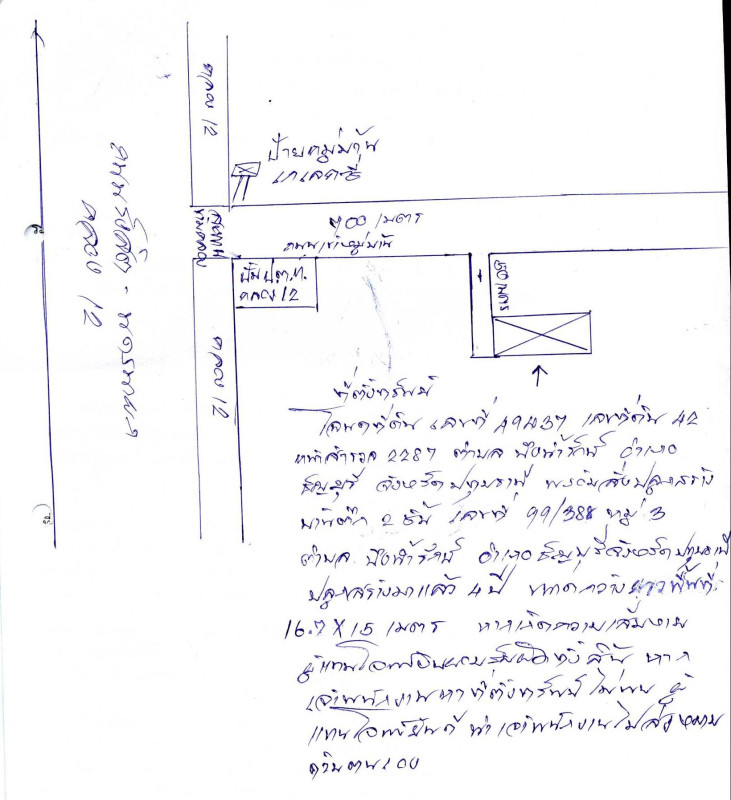 คลอง 12
ป้ายหมู่บ้าน
สะพาน
ข้ามคลอง
400 เมตร
ถนนเข้าหมู่บ้าน
ปั๊ม ป.ต.ท.
คลอง 12
150 เมตร
คลอง 12
ถนนรังสิต - นครนายก
คลอง 12
ที่ตั้งทรัพย์
โฉนดที่ดิน เลขที่ 49437 เลขที่ดิน 42
หน้าสำรวจ 2287 ตำบล บึงน้ำรักษ์ อำเภอ
ธัญบุรี จังหวัดปทุมธานี พร้อมสิ่งปลูกสร้าง
บ้านตึก 2 ชั้น เลขที่ 99/388 หมู่ 3
ตำบล บึงน้ำรักษ์ อำเภอ ธัญบุรี จังหวัดปทุมธานี
ปลูกสร้างมาแล้ว 4 ปี ขนาดกว้างยาวพื้นที่
16.7 X 15 เมตร หากเกิดความเสียหาย
ผู้แทนโจทก์ยินยอมรับผิดทั้งสิ้น หาก
เจ้าพนักงานหาที่ตั้งทรัพย์ไม่พบ ผู้
แทนโจทก์ยินดี นำเจ้าพนักงานไปส่งหมาย
ด้วยตนเอง